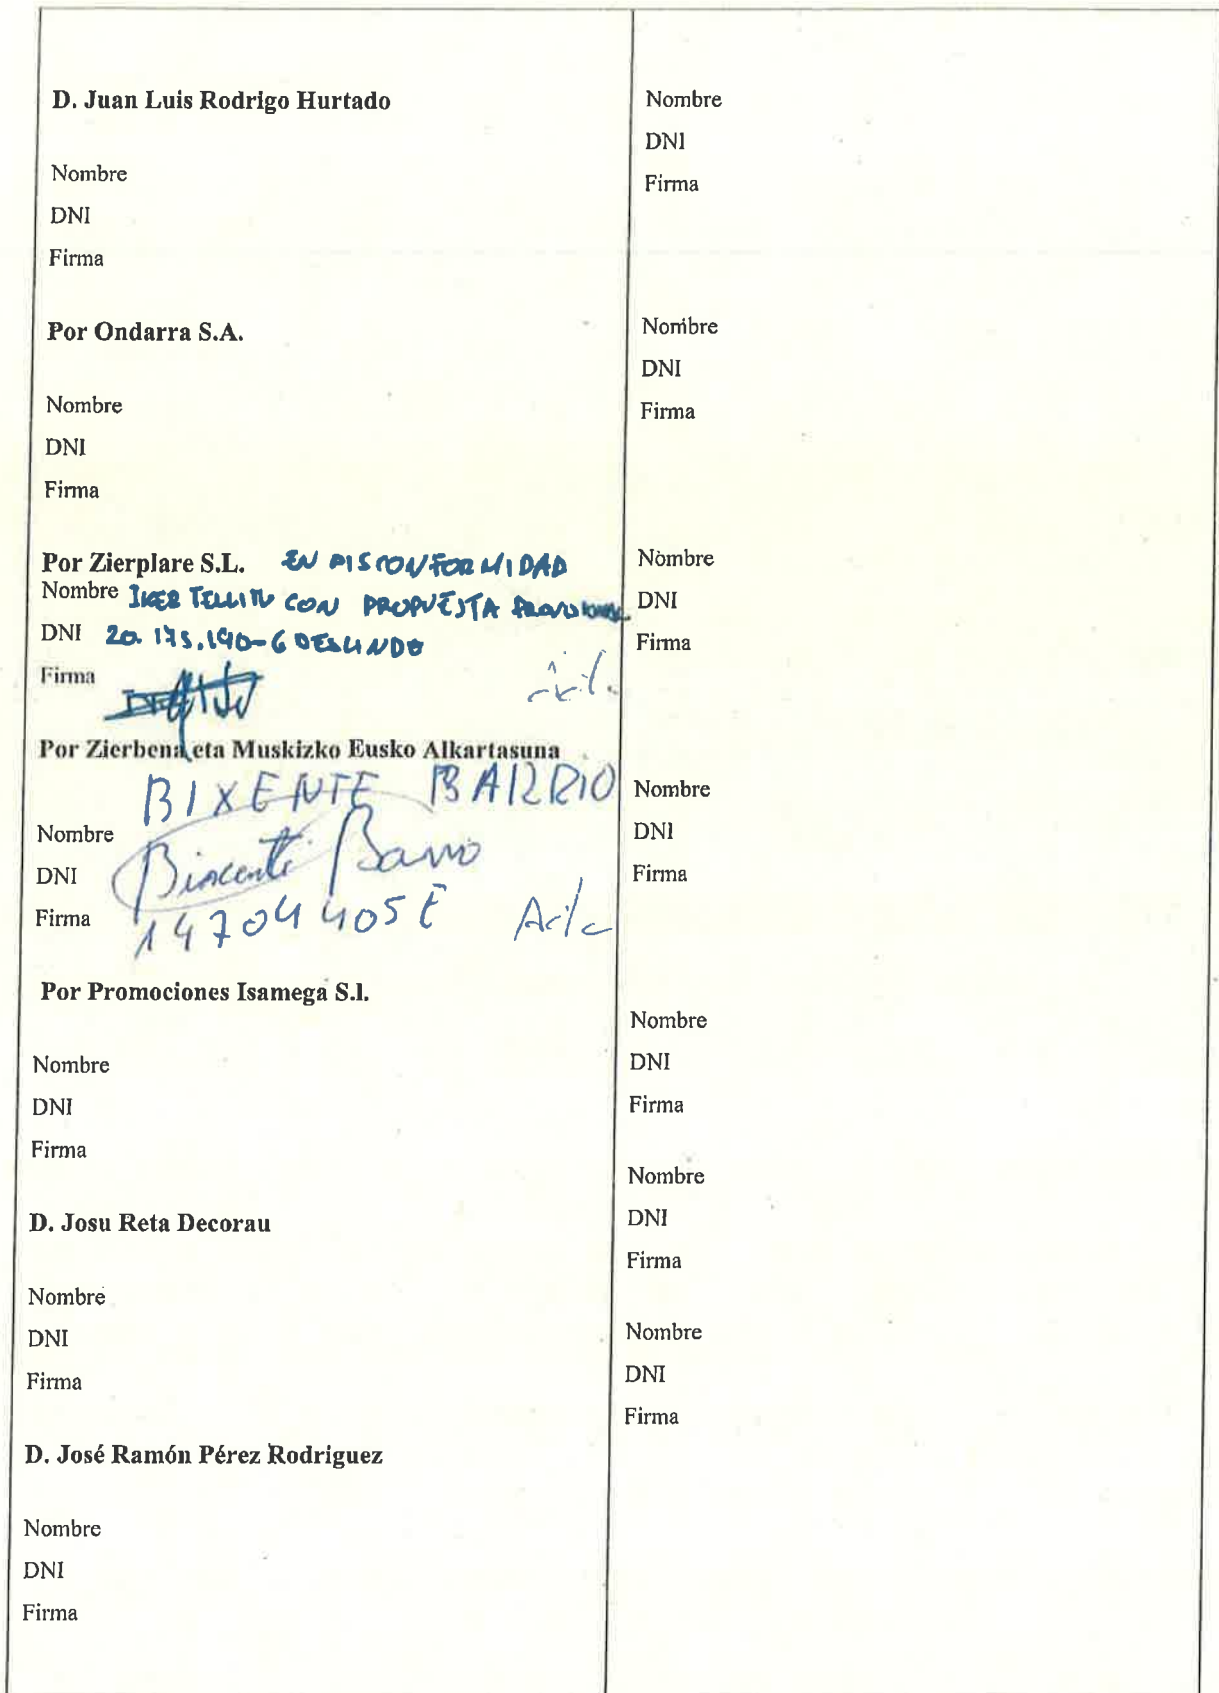 D. Juan Luis Rodrigo Hurtado
Nombre
DNI
Firma
Por Ondarra S.A.
Nombre
DNI
Firma
Por Zierplare S.L. EN DISCONFORMIDAD
Nombre IKER TELLITU CON PROPUESTA
DNI 20.175.190-6 DESLINDE
Firma
Por Zierbena eta Muskizko Eusko Alkartasuna
BIXENTE BARRIO
Nombre
DNI
Firma 14704405E
Por Promociones Isamega S.l.
Nombre
DNI
Firma
D. Josu Reta Decorau
Nombre
DNI
Firma
D. José Ramón Pérez Rodriguez
Nombre
DNI
Firma
Nombre
DNI
Firma
Nombre
DNI
Firma
Nombre
DNI
Firma
Nombre
DNI
Firma
Nombre
DNI
Firma
Nombre
DNI
Firma
Nombre
DNI
Firma